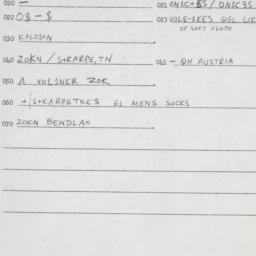 020 —
021 ON1C+ES / ON1C3S
022 O$ – $
023 VOLS-SKES QGL LIK
OF SOFT CLOTH
030 KALOS+N
040 ZOKN / S+KARPE,TN
041 – QH AUSTRIA
050 A VOLINER ZOK
060 +(S+KARPETKES GL MENS SOCKS
070 ZOKN BENDLAX